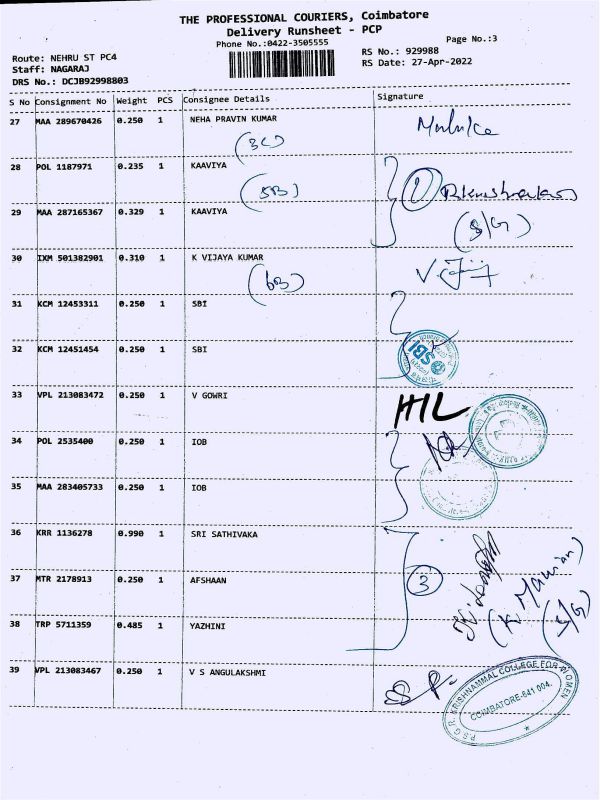 THE PROFESSIONAL COURIERS, Coimbatore
Delivery Runsheet - PCP
Phone No.:0422-3505555
Page No.:3
Route: NEHRU ST PC4
RS No.: 929988
Staff: NAGARAJ
RS Date: 27-Apr-2022
DRS No.: DCJB92998803
S No Consignment No Weight PCS Consignee Details Signature
27 MAA 289670426 0.250 1 NEHA PRAVIN KUMAR
(3C)
28 POL 1187971 0.235 1 KAAVIYA
(5B) 1
29 MAA 287165367 0.329 1 KAAVIYA
(S/G)
30 IXM 501382901 0.310 1 K VIJAYA KUMAR
(6B)
31 KCM 12453311 0.250 1 SBI
32 KCM 12451454 0.250 1 SBI
SBI
33 VPL 213083472 0.250 1 V GOWRI
HIL
34 POL 2535400 0.250 1 IOB
35 MAA 283405733 0.250 1 IOB
36 KRR 1136278 0.990 1 SRI SATHIVAKA
37 MTR 2178913 0.250 1 AFSHAAN
3
38 TRP 5711359 0.485 1 YAZHINI
(S/G)
39 VPL 213083467 0.250 1 V S ANGULAKSHMI
P.S.G.R. KRISHNAMMAL COLLEGE FOR WOMEN
COIMBATORE-641 004.